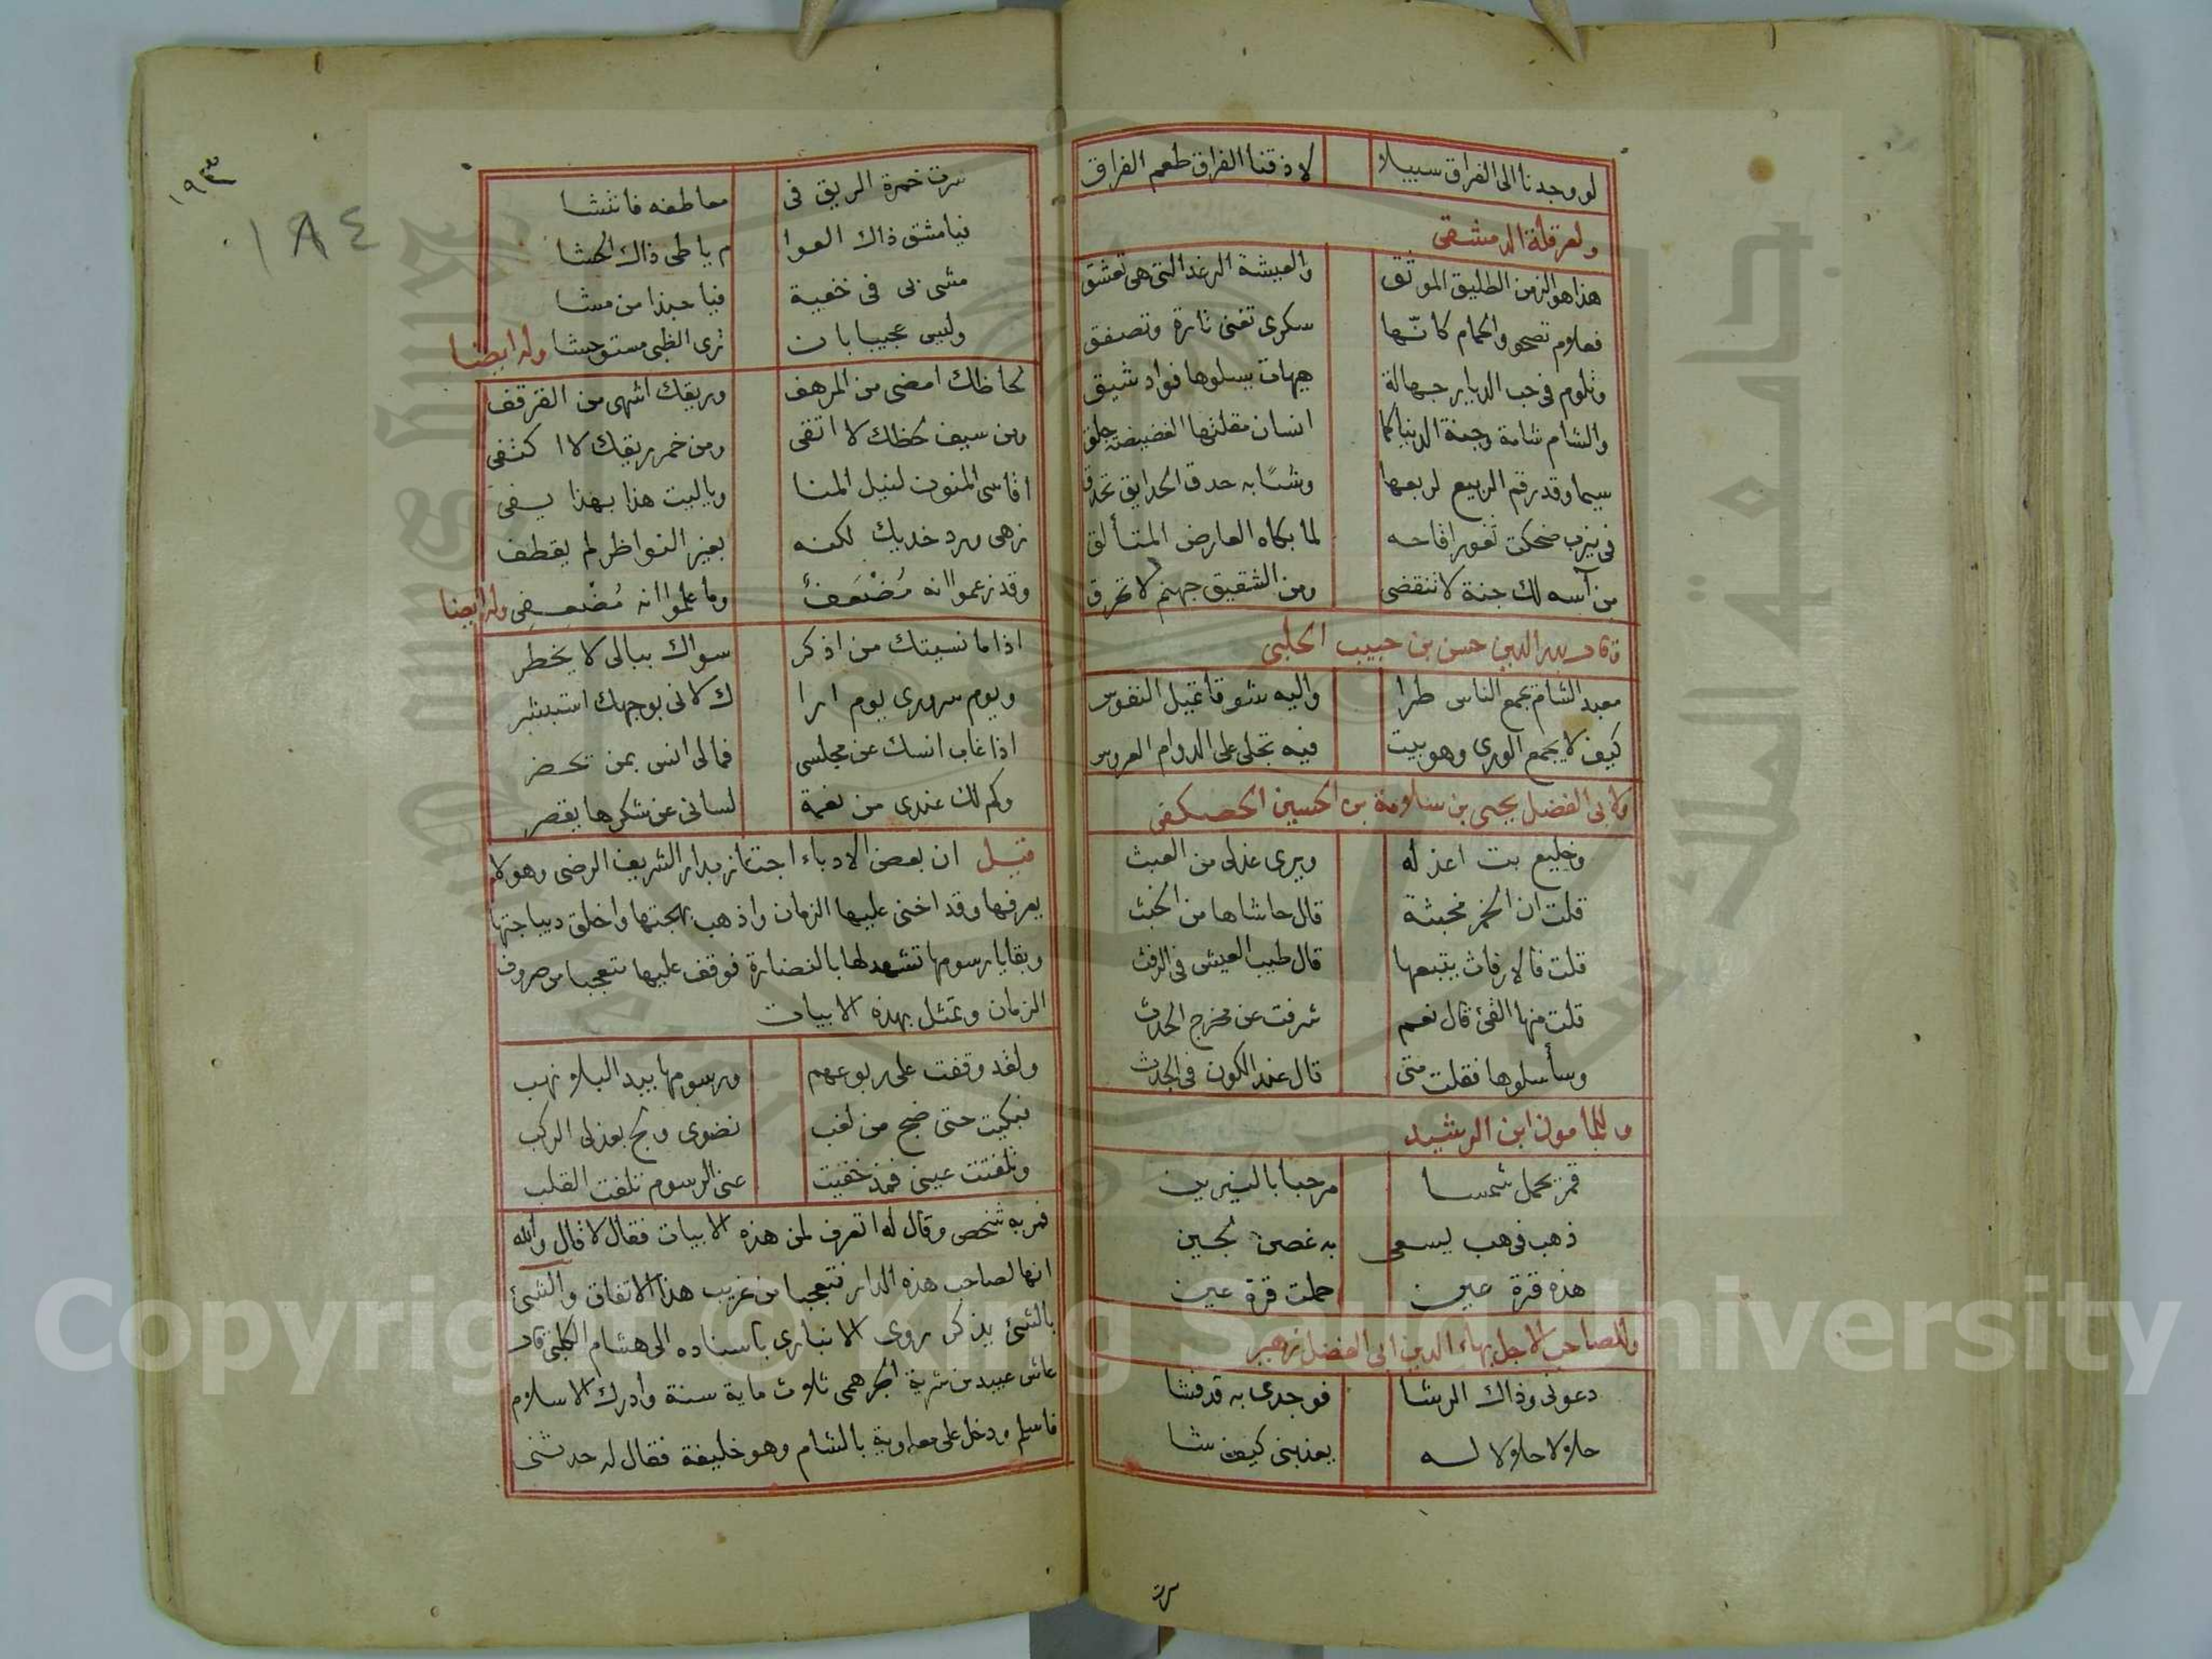 لو وجدنا الى الفراق سبيلا لاذقنا الفراق طعم الفراق
ولعرقلة الدمشقى
هذا هو الزمن الطليق الموثق والعيشة الرغد التى هى تعشق
فعلام تصحو والحمام كانّها سكرى تغنى تارة وتصفق
وتلوم فى حب الديار جهالة هيهات يسلوها فواد شيق
والشام شامة وجنة الدنيا كما انسان مقلتها الغضيضة جلق
سيما وقد رقم الربيع لربعها وشيًا به حدق الحدايق تحدق
فى نيرب ضحكت ثغور اقاحه لما بكاه العارض المتألق
من آسه لك جنة لا تنقضى ومن الشقيق جهنم لا تحرق
قال بدر الدين حسن بن حبيب الحلبى
معبد الشام يجمع الناس طرا واليه شوقا تميل النفوس
كيف لا يجمع الورى وهو بيت فيه تجلى على الدوام العروس
ولابى الفضل يحيى بن سلامة بن الحسين الحصكفى
وخليع بت اعذله ويرى عذلى من العبث
قلت ان الخمر مخبثة قال حاشاها من الخبث
قلت فالارفاث يتبعها قال طيب العيش فى الرفث
قلت منها القئ قال نعم شرفت عن مخرج الحدث
وسأسلوها فقلت متى قال عند الكون فى الجدث
وللمامون ابن الرشيد
قمر يحمل شمسا مرحبا بالنيرين
ذهب فى هب يسعى به غصن لجين
هذه قرة عين حملت قرة عين
وللصاحب الاجل بهاء الدين ابى الفضل زهير
دعونى وذاك الرشا فوجدى به قد فشا
حلالا حلالا له يعذبنى كيف شا
سرت
١٩٣
١٨٤
سرت خمرة الريق فى معاطفه فانتشا
فيا مشق ذاك القوا م يا طى ذاك الحشا
مشى بى فى خفية فيا حبذا من مشا
وليس عجيبا بان ترى الظبى مستوحشا وله ايضا
لحاظك امضى من المرهف وريقك اشهى من القرقف
ومن سيف لحظك لا اتقى ومن خمر ريقك لا اكتفى
اقاسى المنون لنيل المنا وياليت هذا بهذا يفى
زهى ورد خديك لكنه بغير النواظر لم يقطف
وقد زعموا انه مُضْعَفٌ وما علموا انه مُضْعِفِى وله ايضا
اذا ما نسيتك من اذكر سواك ببالى لا يخطر
ويوم سرورى يوم ارا ك لانى بوجهك استبشر
اذا غاب انسك عن مجلسى فمالى انس بمن تحضر
وكم لك عندى من نعمة لسانى عن شكرها يقصر
قيل ان بعض الادباء اجتاز بدار الشريف الرضى وهو لا
يعرفها وقد اخنى عليها الزمان واذهب بهجتها واخلق ديباجتها
وبقايا رسومها تشهد لها بالنضارة فوقف عليها متعجبا من صروف
الزمان وتمثل بهذه الابيات
ولقد وقفت على ربوعهم ورسومها بيد البلا نهب
فبكيت حتى ضج من لغب نضوى ولج بعذلى الركب
وتلفتت عينى فمذ خفيت عنى الرسوم تلفت القلب
فمر به شخص وقال له اتعرف لمن هذه الابيات فقال لا قال والله
انها لصاحب هذه الدار فتعجبا من غريب هذا الاتفاق والشئ
بالشئ يذكر روى الانبارى باسناده الى هشام الكلبى قال
عاش عبيد بن شرية الجرهمى ثلاث ماية سنة وادرك الاسلام
فاسلم ودخل على معاوية بالشام وهو خليفة فقال له حدثنى
Copyright © King Saud University